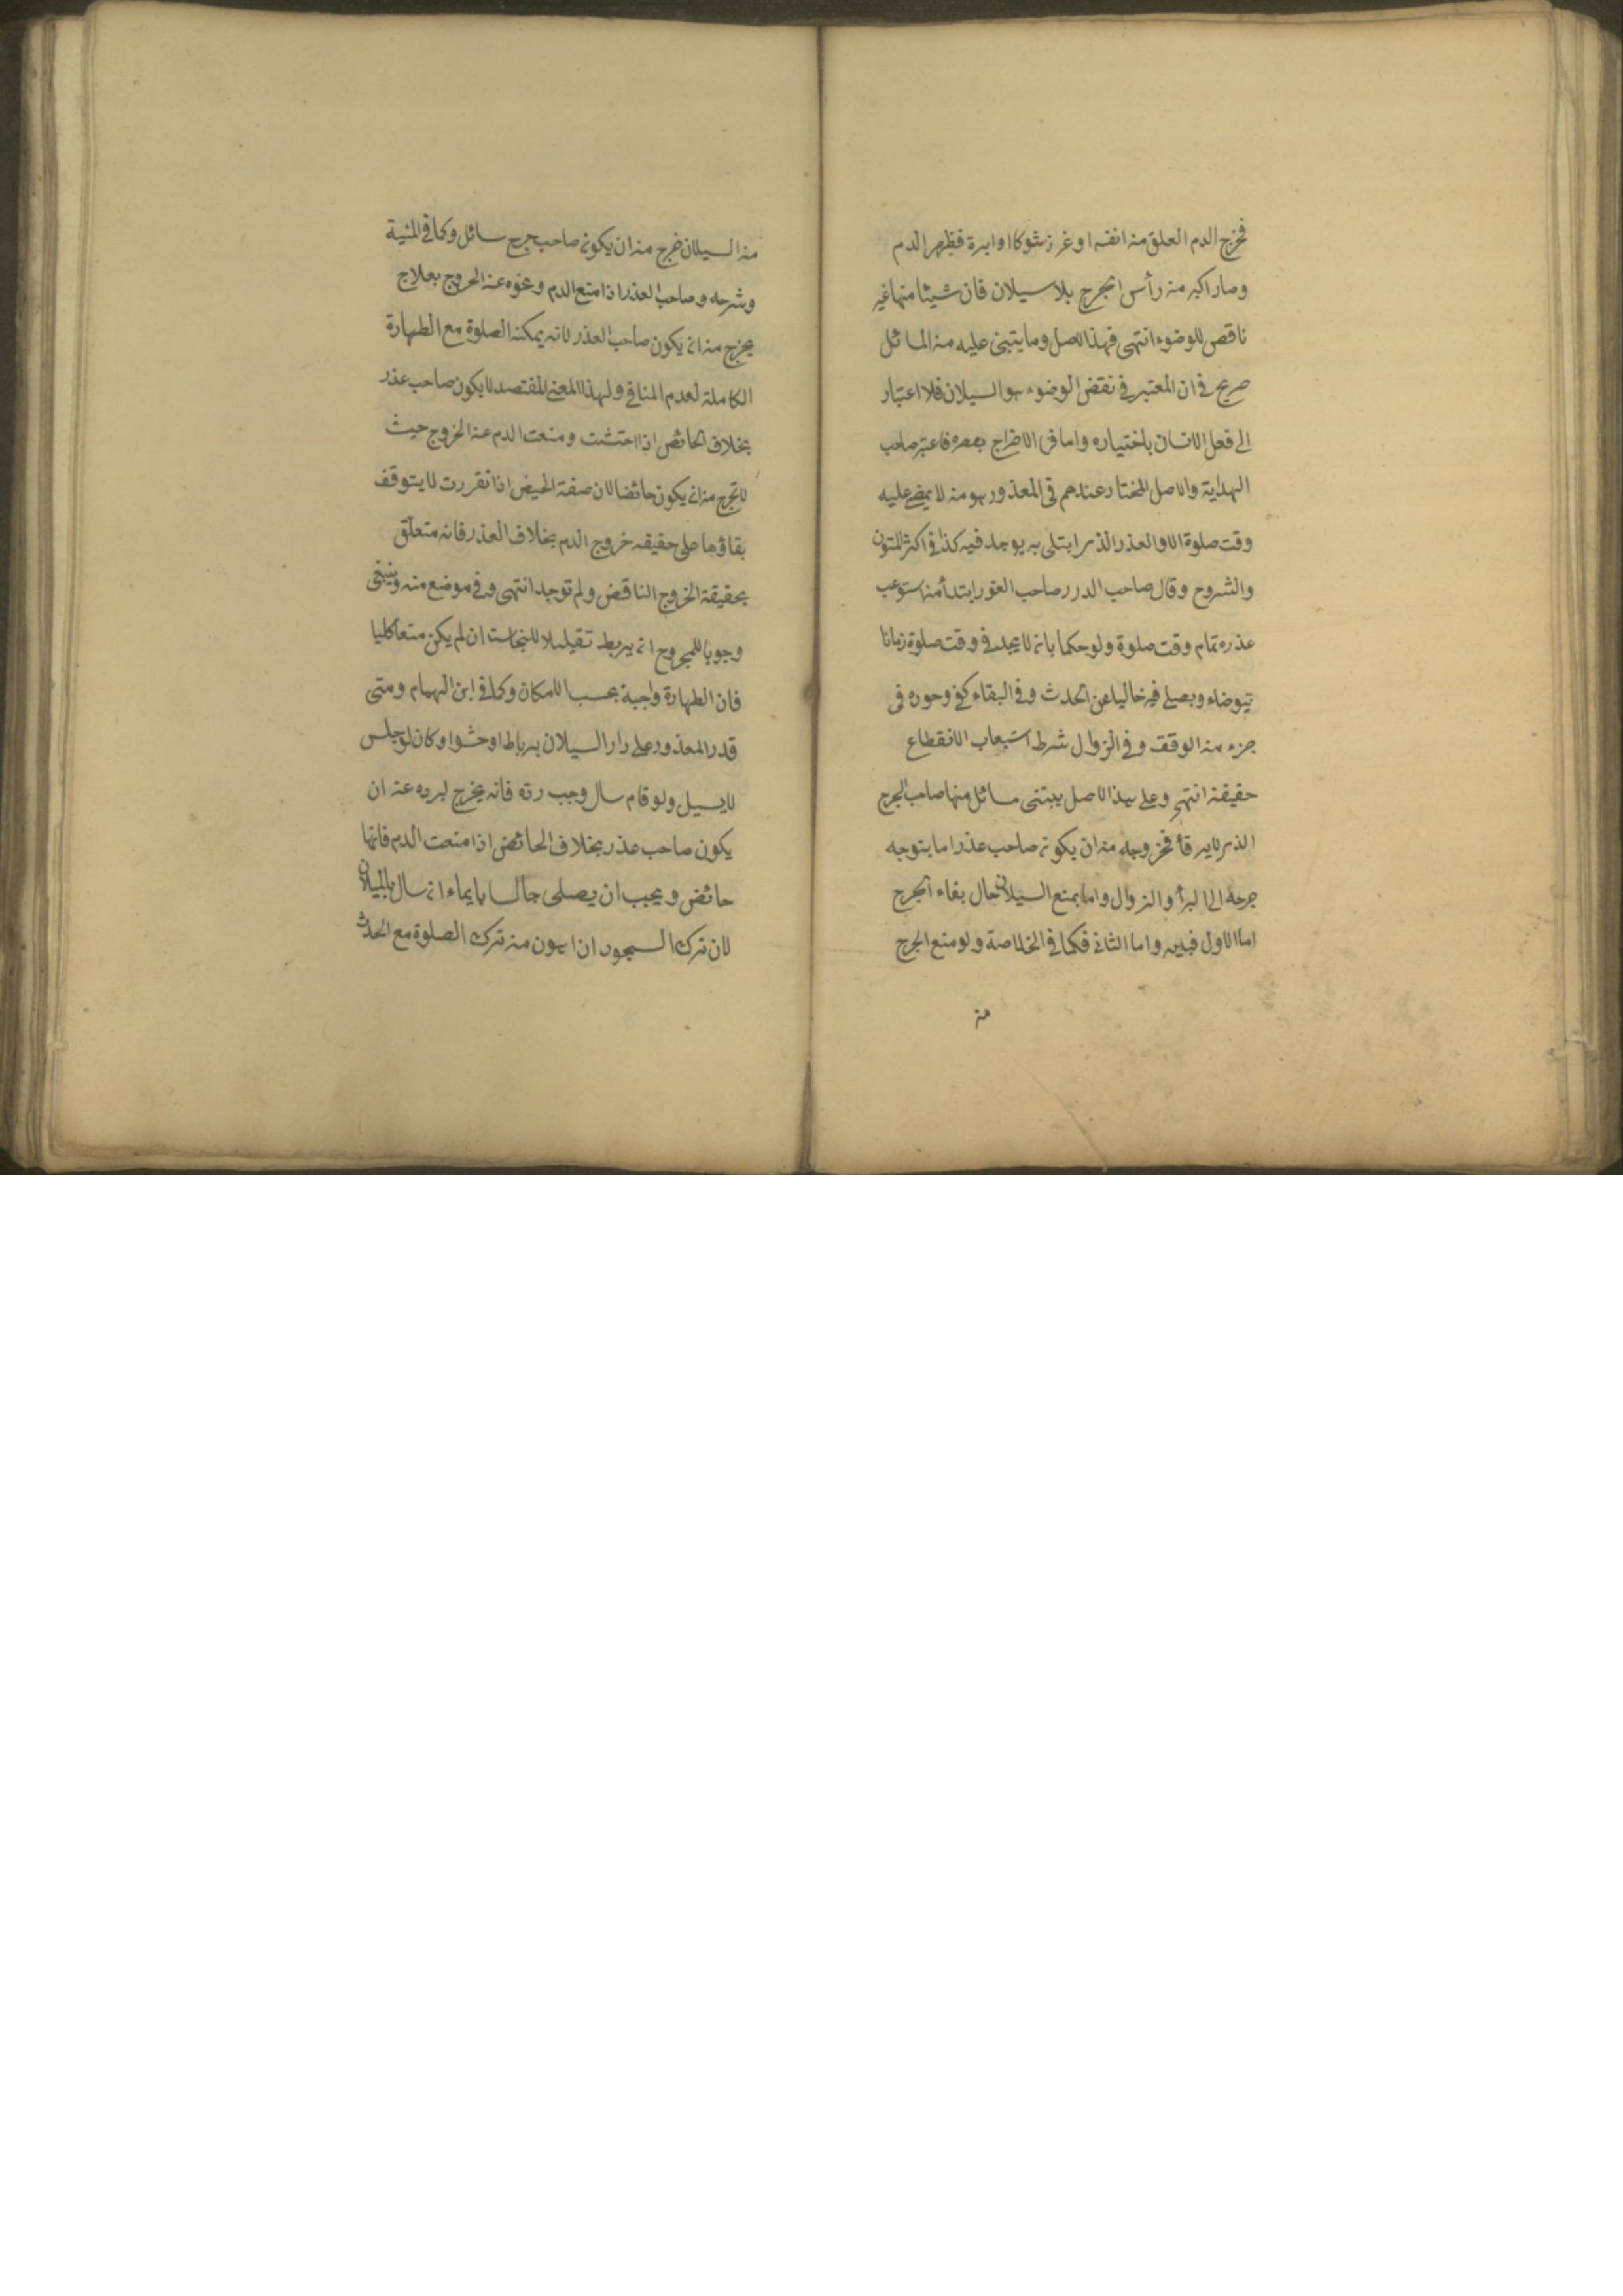 فخرج الدم العلق من انفه او غرز شوكا او ابرة فظهر الدم
وصار اكبر من رأس الجرح بلا سيلان فان شيئا منها غير
ناقص للوضوء انتهى فهذا الاصل وما يتبنى عليه من المسائل
صريح في ان المعتبر في نقض الوضوء هو السيلان فلا اعتبار
الى فعل الانسان باختياره واما في الاخراج بعصره فاعتبر صاحب
الهداية والاصل المختار عندهم في المعذور هو من لا يمضي عليه
وقت صلوة الا والعذر الذي ابتلى به يوجد فيه كذا في اكثر المتون
والشروح وقال صاحب الدرر صاحب العذر ابتدأ من استوعب
عذره تمام وقت صلوة ولو حكما بان لا يجد في وقت صلوة زمانا
يتوضاء ويصلي فيه خاليا عن الحدث وفي البقاء كفى وجوده في
جزء من الوقت وفي الزوال شرط استيعاب الانقطاع
حقيقة انتهى وعلى هذا الاصل يبتنى مسائل منها صاحب الجرح
الذي لا يرقأ فخروجه من ان يكون صاحب عذر اما بتوجه
جرحه الى البرأ والزوال واما بمنع السيلان حال بقاء الجرح
اما الاول فبين واما الثاني فكما في الخلاصة ولو منع الجرح
من
من السيلان خرج من ان يكون صاحب جرح سائل وكما في المنية
وشرحه وصاحب العذر اذا منع الدم ونحوه عن الخروج بعلاج
يخرج من ان يكون صاحب العذر لانه يمكنه الصلوة مع الطهارة
الكاملة لعدم المنافي ولهذا المعنى المفتصد لا يكون صاحب عذر
بخلاف الحائض اذا احتشت ومنعت الدم عن الخروج حيث
لا تخرج من ان يكون حائضا لان صفة الحيض اذا تقررت لا يتوقف
بقاؤها على حقيقة خروج الدم بخلاف العذر فانه متعلق
بحقيقة الخروج الناقض ولم توجد انتهى وفي موضع منه وينبغي
وجوبا للمجروح ان يربط تقليلا للنجاست ان لم يكن منعا كليا
فان الطهارة واجبة بحسب الامكان وكما في ابن الهمام ومتى
قدر المعذور على رد السيلان برباط او حشو او كان لو جلس
لا يسيل ولو قام سال وجب رده فانه يخرج لبرده عن ان
يكون صاحب عذر بخلاف الحائض اذا منعت الدم فانها
حائض ويجب ان يصلى جالسا بايماء ان سال بالميلان
لان ترك السجود اهون من ترك الصلوة مع الحدث